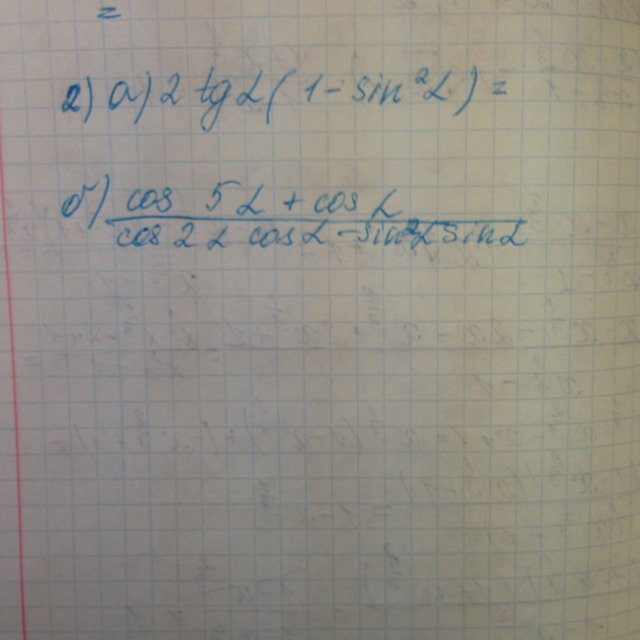 =
2) а) 2 tg α (1 - sin²α) =
б) cos 5α + cos α
cos 2α cos α - sin²α sin α